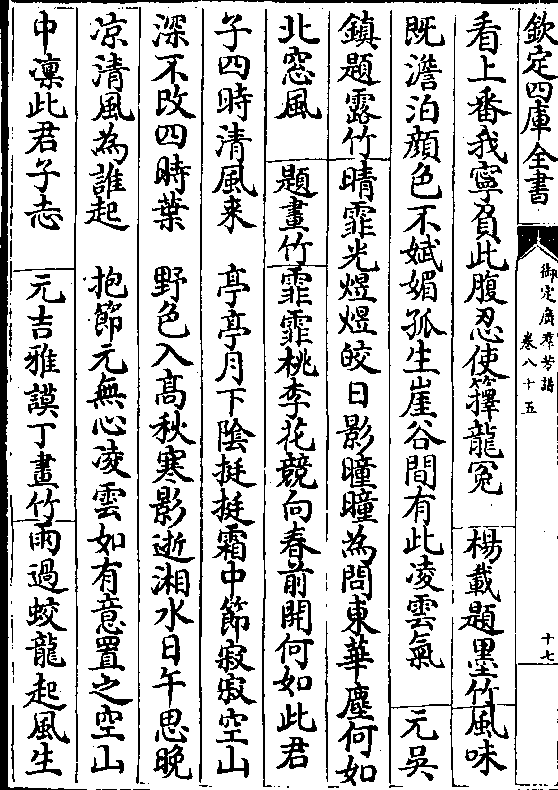 欽定四庫全書
御定廣羣芳譜
卷八十五
十七
看上番我寧負此腹忍使籜龍冤　楊載題墨竹風味
既澹泊顔色不嫵媚孤生崖谷間有此凌雲氣　元吳
鎮題露竹晴霏光煜煜皎日影曈曈為問東華塵何如
北窓風　題畫竹霏霏桃李花競向春前開何如此君
子四時清風來　亭亭月下陰挺挺霜中節寂寂空山
深不改四時葉　野色入高秋寒影逝湘水日午思晚
凉清風為誰起　抱節元無心凌雲如有意置之空山
中凜此君子志　元吉雅謨丁畫竹雨過蛟龍起風生